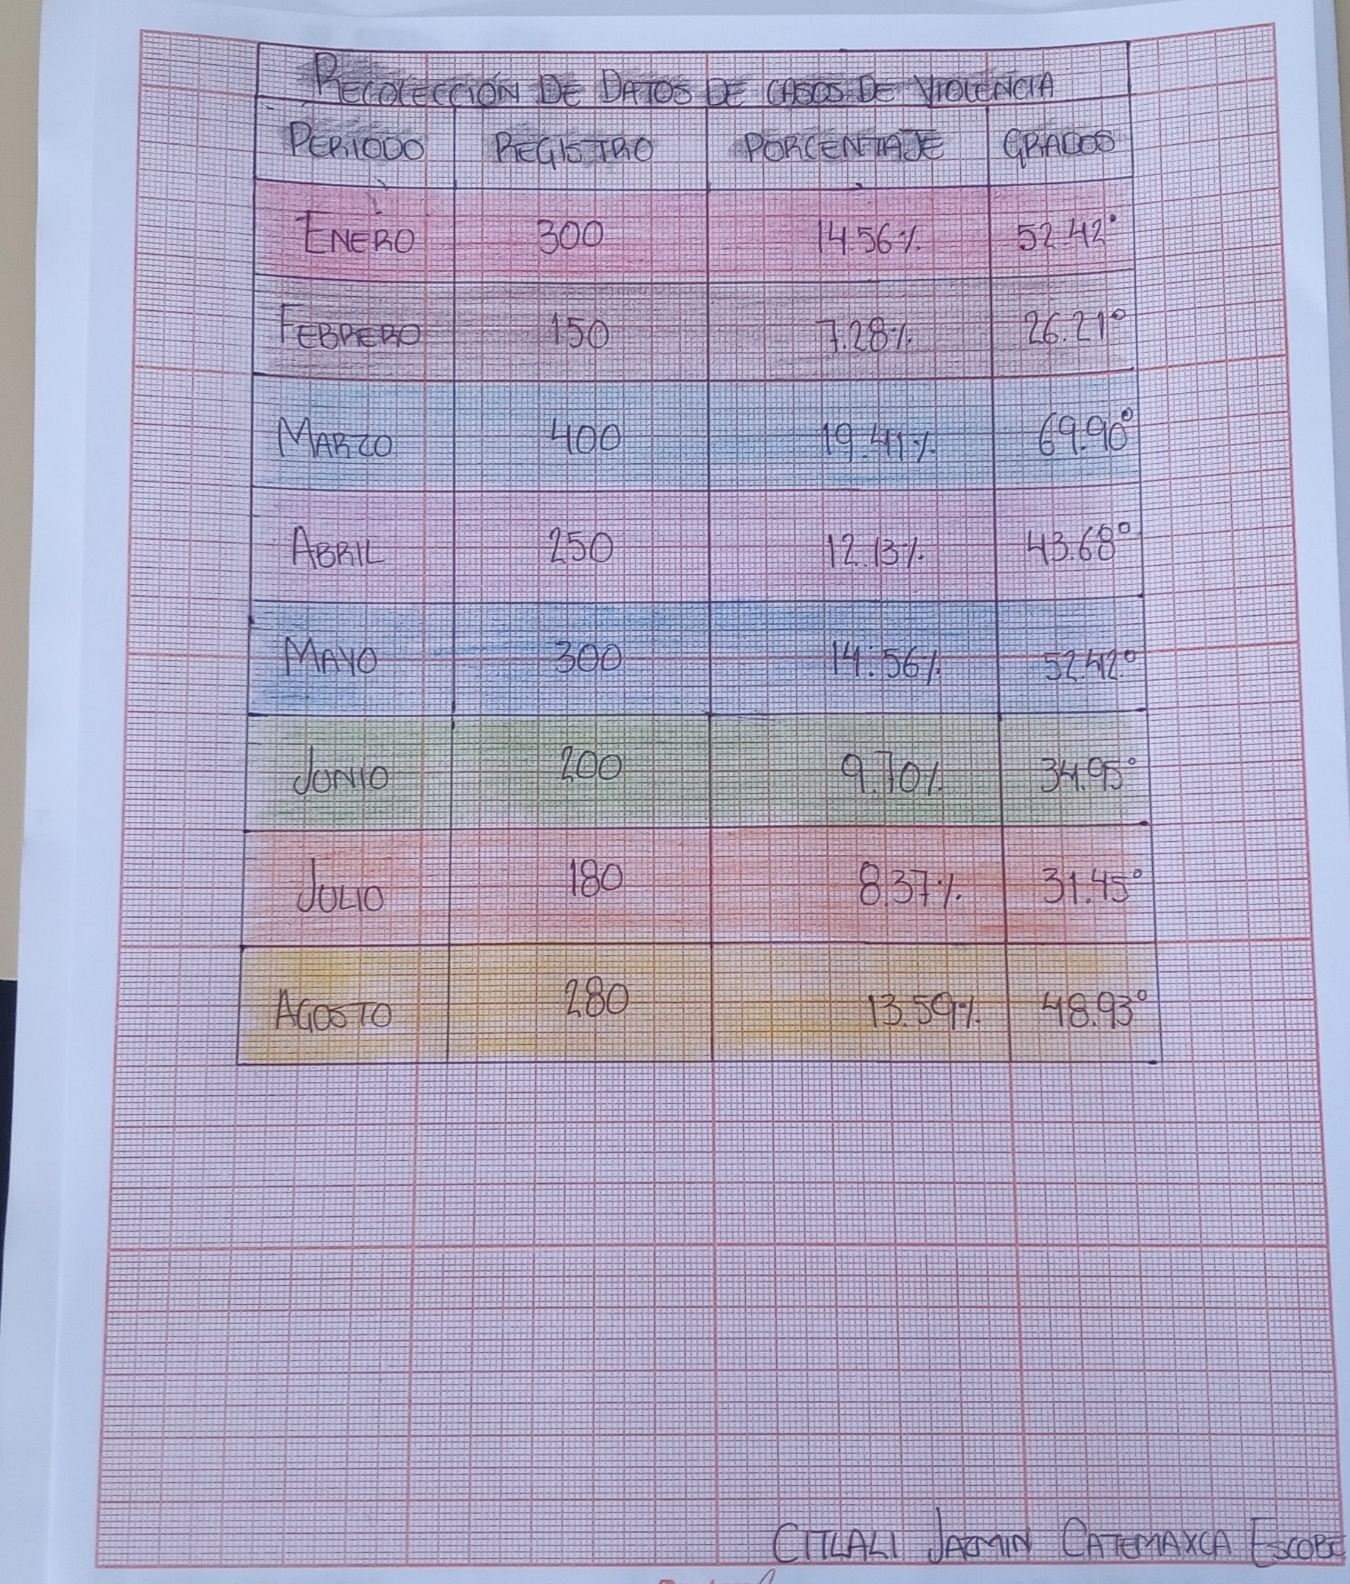 RECOLECCIÓN DE DATOS DE CASOS DE VIOLENCIA
PERIODO REGISTRO PORCENTAJE GRADOS
ENERO 300 14.56% 52.42°
FEBRERO 150 7.28% 26.21°
MARZO 400 19.41% 69.90°
ABRIL 250 12.13% 43.68°
MAYO 300 14.56% 52.42°
JUNIO 200 9.70% 34.95°
JULIO 180 8.37% 31.45°
AGOSTO 280 13.59% 48.93°
CITLALI JAZMIN CATEMAXCA ESCOBE